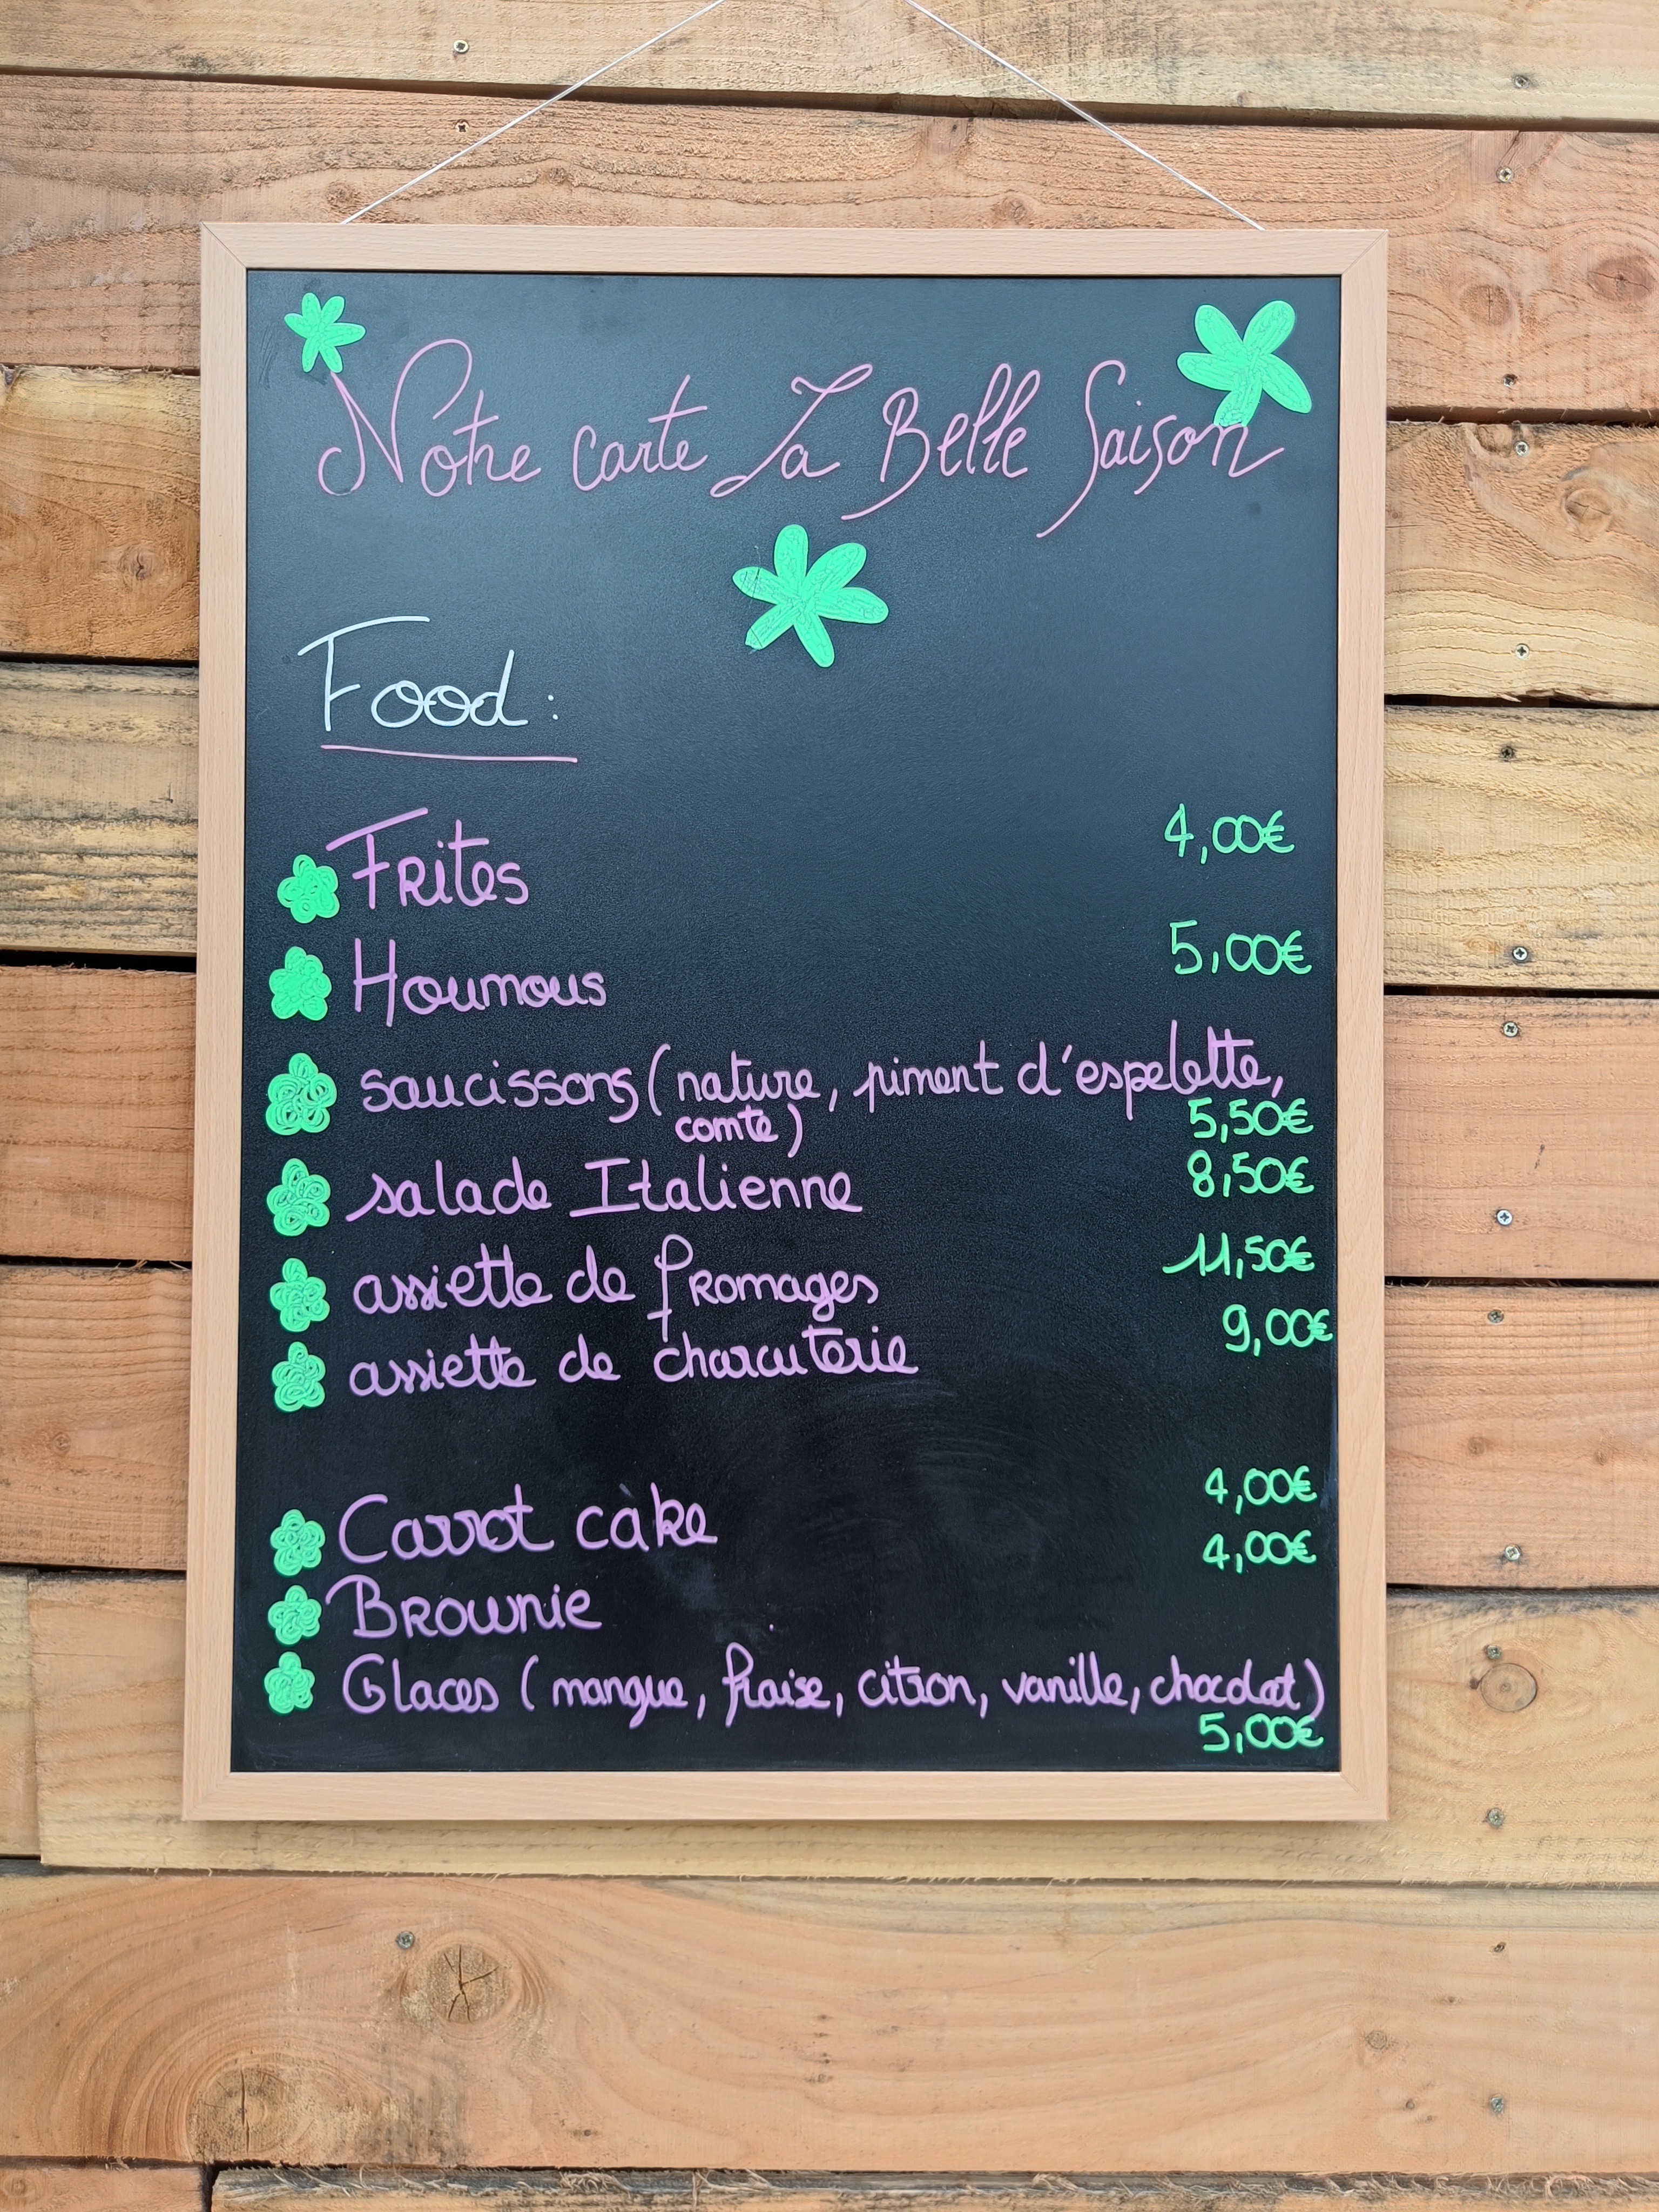 Notre carte La Belle Saison
Food :
Frites 4,00€
Houmous 5,00€
saucissons (nature, piment d'espelette,
comte) 5,50€
salade Italienne 8,50€
assiette de fromages 11,50€
assiette de charcuterie 9,00€
Carrot cake 4,00€
Brownie 4,00€
Glaces (mangue, fraise, citron, vanille, chocolat)
5,00€